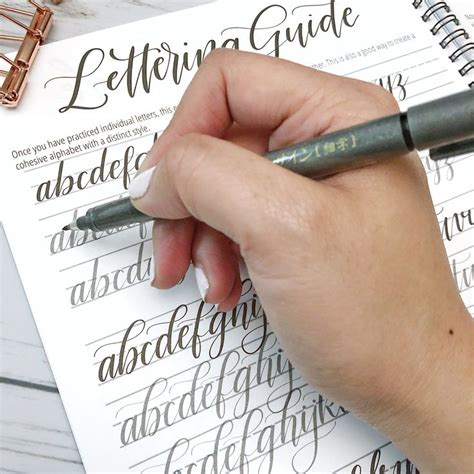 Lettering Guide
Once you have practiced individual letters, this This is also a good way to create a
cohesive alphabet with a distinct style.
abcdef yz
イン【細字】
abcd
abcd
abcdefghij
abcdefghijk
abcdefghijk